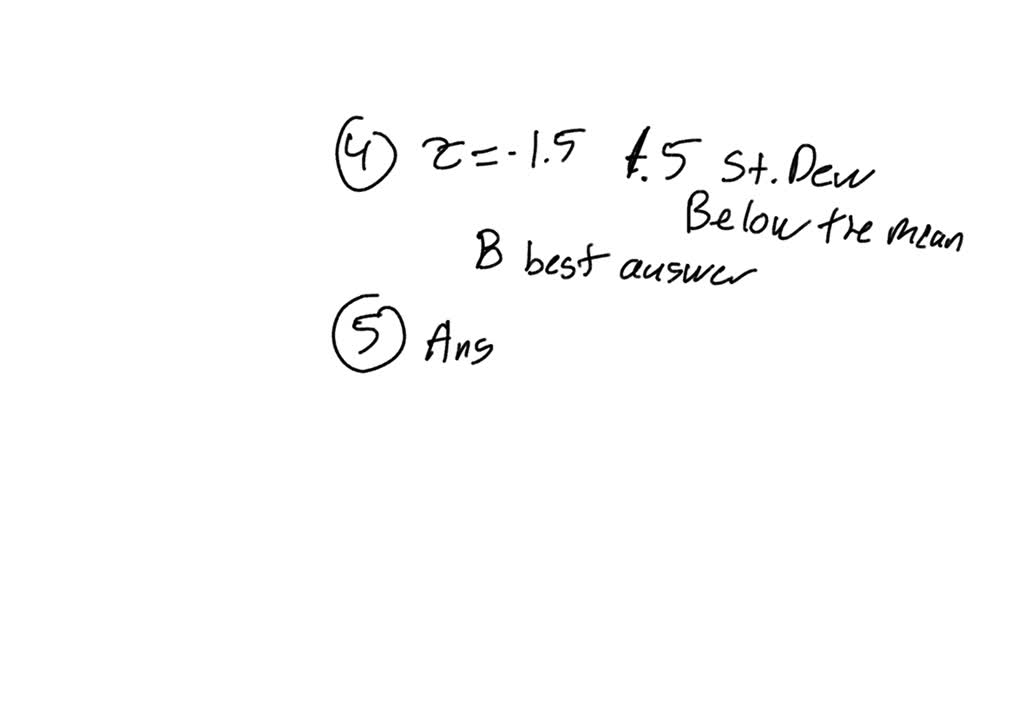 ④ z = -1.5 1.5 St. Dev
Below the mean
B best answer
⑤ Ans